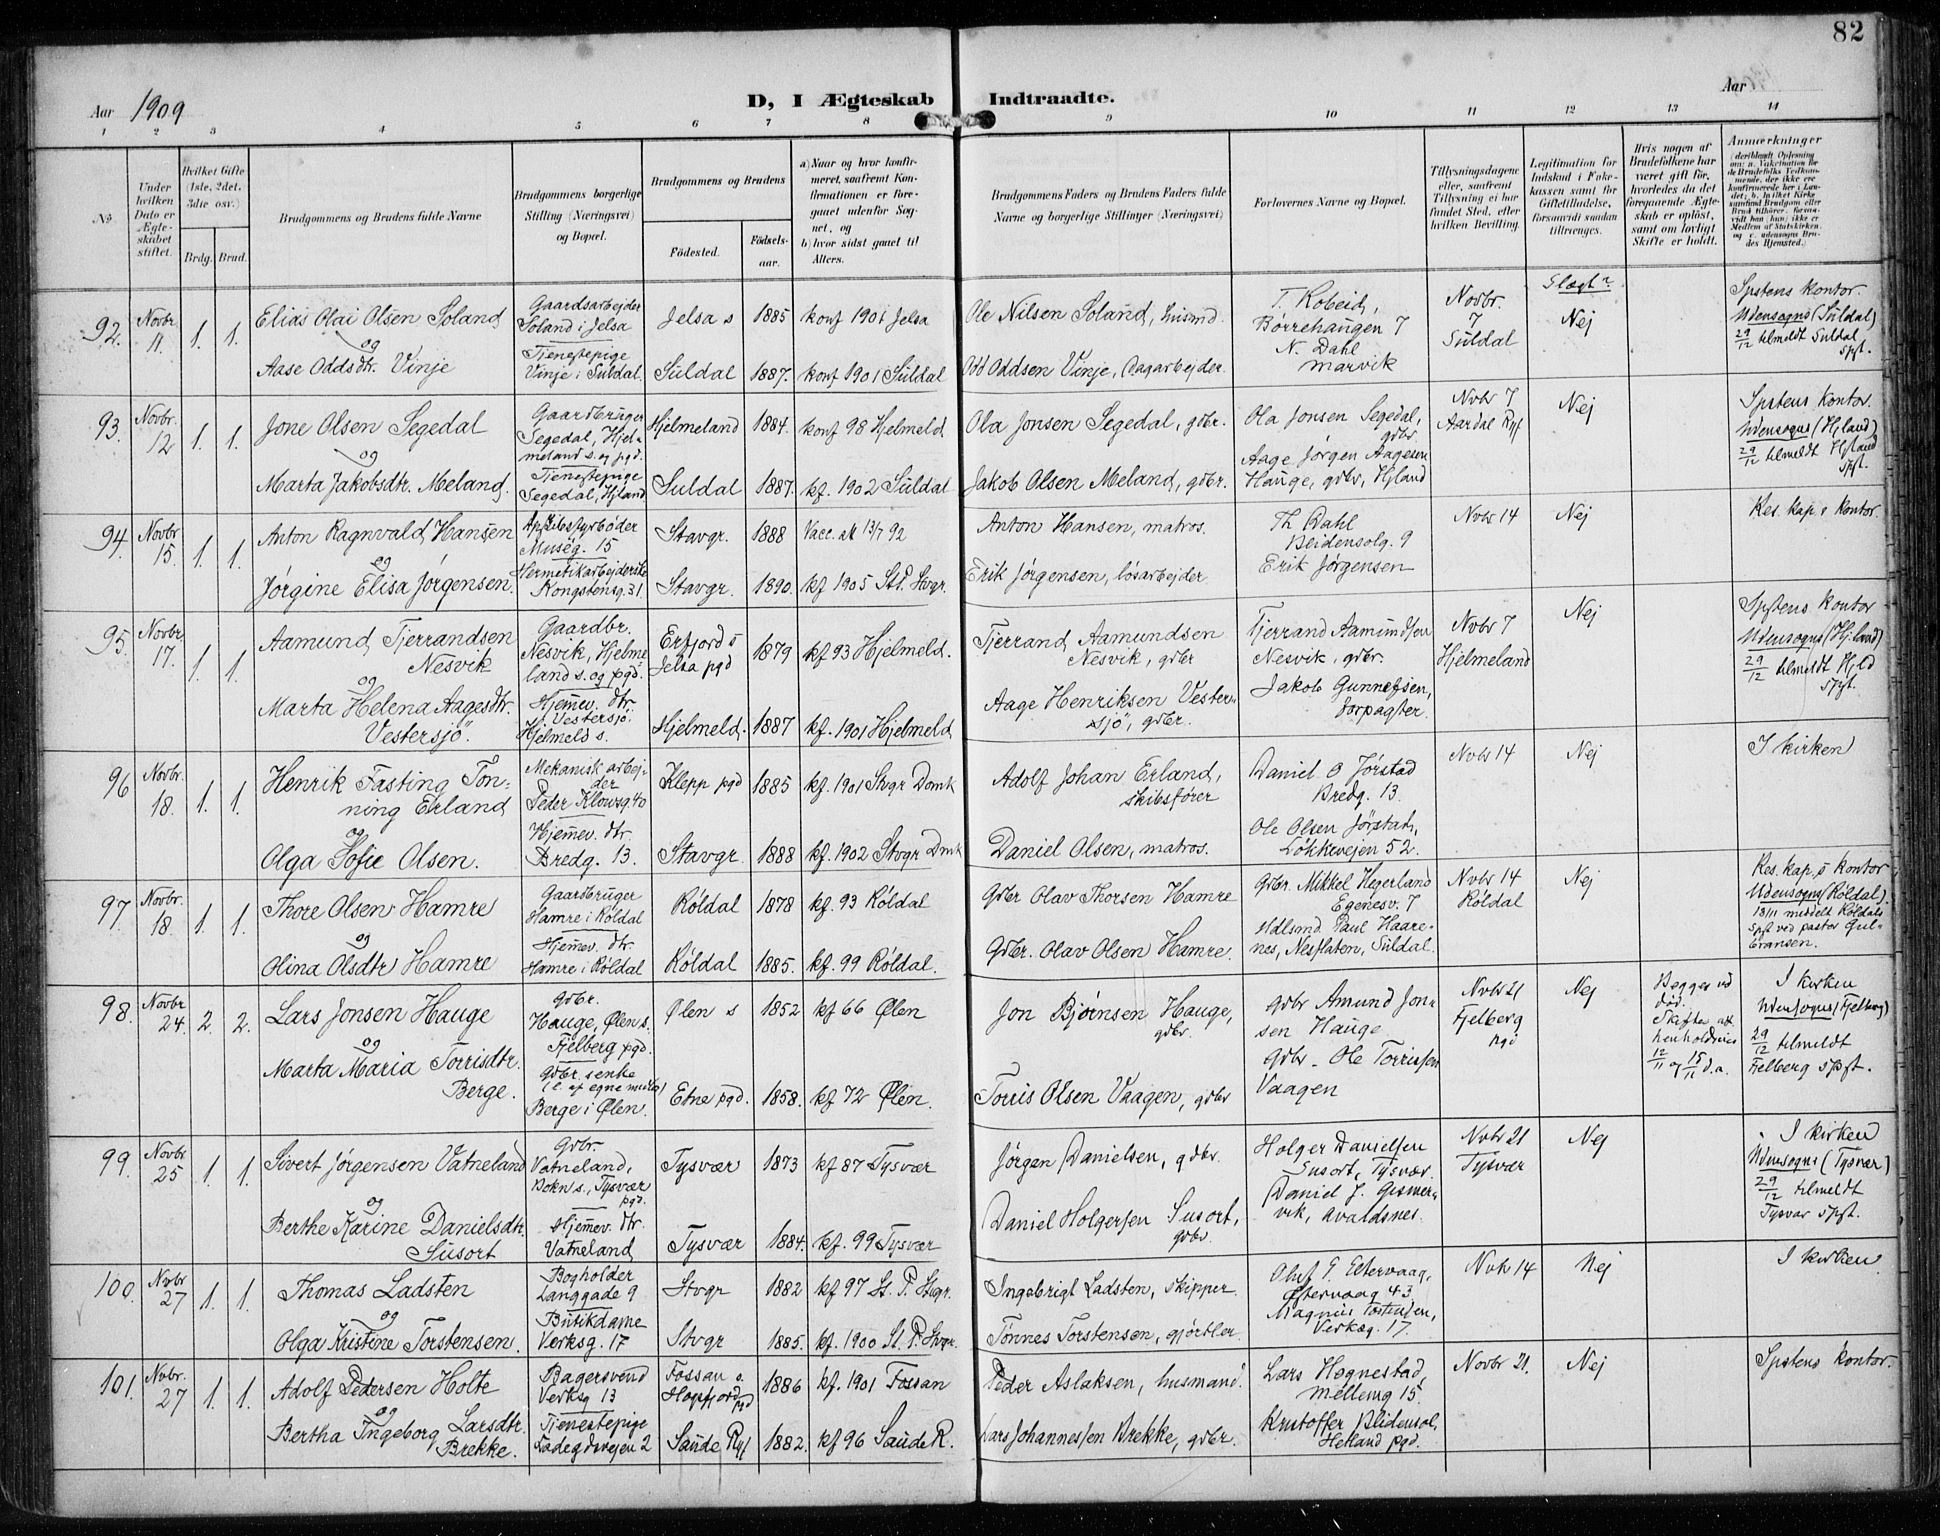 82
Aar 1909
D, I Ægteskab Indtraadte.
Aar
1 2 3 4 5 6 7 8 9 10 11 12 13 14
No.
Under hvilken Dato er Ægteskabet stiftet.
Hvilket Gifte (1ste, 2det, 3die osv.)
Brdg. Brud.
Brudgommens og Brudens fulde Navne
Brudgommens borgerlige Stilling (Næringsvei) og Bopæl.
Brudgommens og Brudens
Fødested. Fødselsaar.
a) Naar og hvor konfirmeret, saafremt Konfirmationen er foregaaet udenfor Sognet, og
b) hvor sidst gaaet til Alters.
Brudgommens Faders og Brudens Faders fulde Navne og borgerlige Stillinger (Næringsvei)
Forlovernes Navne og Bopæl.
Tillysningsdagene eller, saafremt Tillysning ei har fundet Sted, efter hvilken Bevilling.
Legitimation for Indskud i Enkekassen samt for Giftetilladelse, forsaavidt saadan tiltrænges.
Hvis nogen af Brudefolkene har været gift før, hvorledes da det foregaaende Ægteskab er opløst, samt om lovligt Skifte er holdt.
Anmærkninger
92. Novbr 11. 1. 1. Elias Olai Olsen Soland Gaardsarbejder Soland i Jelsa Jelsa s 1885 konf 1901 Jelsa Ole Nilsen Soland, husmd. T. Kobeid, Børrehaugen 7 Novbr. 7 Suldal Slægt? Nej Spstens kontor. Udensogns (Suldal) 29/12 tilmeldt Suldal spst.
og
Aase Oddsdtr. Vinje Tjenestepige Vinje i Suldal Suldal 1887. konf 1901 Suldal Odd Oddsen Vinje, Dagarbejder. N. Dahl Marvik
93. Novbr. 12 1. 1. Jone Olsen Segedal Gaardbruger Segedal, Hjelmeland s. og pgd. Hjelmeland 1884. konf 98 Hjelmeld. Ola Jonsen Segedal, gdbr. Ola Jonsen Segedal, gdbr. Novbr 7 Aardal Ryf Nej Spstens kontor. Udensogns (Hjland) 29/12 tilmeldt Hjland spst.
og
Marta Jakobsdtr. Meland. Tjenestepige Segedal, Hjland Suldal 1887. kf. 1902 Suldal Jakob Olsen Meland, gdbr. Aage Jørgen Aagesen Hauge, gdbr, Hjland
94. Novbr 15. 1. 1. Anton Ragnvald Hansen Museg. 15 Stavgr. 1888 Vacc. att 13/7 92 Anton Hansen, matros. Th Dahl 9 Nvbr 14 Nej Res. kap,s kontor.
og
Jørgine Elisa Jørgensen. Kongstensg. 31. Stavgr. 1890. kf 1905 St P. Stvgr. Erik Jørgensen, løsarbejder. Erik Jørgensen
95. Novbr 17. 1. 1. Aamund Tjerrandsen Nesvik Gaardbr. Nesvik, Hjelmeland s. og pgd. Erfjord s Jelsa pgd 1879 kf 93 Hjelmeld. Tjerrand Aamundsen Nesvik, gdbr Tjerrand Aamundsen Nesvik, gdbr. Nvbr 7 Hjelmeland Nej Spstens kontor Udensogns (Hjland) 29/12 tilmeldt Hjld spst.
og
Marta Helena Aagesdtr. Vestersjö. Hjemev. dtr. Vestersjö. Hjelmeld s. Hjelmeld. 1887 kf. 1901 Hjelmeld Aage Henriksen Vestersjö, gdbr. Jakob Gunnessen, forpagter.
96 Novbr. 18. 1. 1. Henrik Fasting Tonning Erland Mekanisk arbejder Peder Klowsg 40 Klepp pgd 1885 kf. 1901 Stvgr Domk Adolf Johan Erland, skibsfører Daniel O Jørstad Bredg. 13. Nvbr 14 Nej I kirken
og
Olga Sofie Olsen. Hjemev. dtr Bredg. 13. Stavgr 1888 kf. 1902 Stvgr Dmk Daniel Olsen, matros. Ole Olsen Jørstad, Løkkevejen 52.
97. Novbr. 18. 1. 1. Thore Olsen Hamre Gaardbruger Hamre i Røldal Røldal 1878 kf. 93 Røldal Gdbr Olav Thorsen Hamre Gdbr. Mikkel Hegerland Egenesv. 7 Nvbr 14 Røldal Nej Res. kap,s kontor Udensogns (Røldal). 18/11 meddelt Røldals spst ved pastor Gulbransen.
og
Olina Olsdtr Hamre Hjemev. dtr. Hamre i Røldal Røldal 1885. kf. 99 Røldal. Gdbr. Olav Olsen Hamre. Hdlsmd. Paul Haarenes, Nesflaten, Suldal.
98. Novbr 24. 2. 2. Lars Jonsen Hauge Gdbr. Hauge, Ølen s. Fjelberg pgd. Ølen s 1852 kf 66 Ølen Jon Bjørnsen Hauge, gdbr. Gdbr Amund Jonsen Hauge Nvbr 21 Fjelberg pgd Nej Begges ved død. Skifteatt henholdsvis 12/11 og 15/11 d.a. I kirken Udensogns (Fjelberg) 29/12 tilmeldt Fjelberg spst.
og
Marta Maria Torrisdtr. Berge. Gdbr. enke (l. af egne midler) Berge i Ølen. Etne pgd. 1858. kf 72 Ølen. Torris Olsen Vaagen, gdbr Gdbr. Ole Torrissen Vaagen
99. Novbr. 25 1. 1. Sivert Jørgensen Vatneland Gdbr. Vatneland, Bokn s., Tysvær pgd. Tysvær 1873 kf 87 Tysvær Jørgen Danielsen, gdbr. Holger Danielsen Susort, Tysvær. Nvbr 21 Tysvær Nej I kirken Udensogns (Tysvær) 29/12 tilmeldt Tysvær spst.
og
Berthe Karine Danielsdtr. Susort Hjemev. dtr. Vatneland Tysvær 1884. kf. 99 Tysvær Daniel Holgersen Susort, gdbr. Daniel J. Gismervik, Avaldsnes.
100. Nvbr 27 1. 1. Thomas Ladsten Bogholder Langgade 9 Stvgr 1882 kf 97 St. P. Stvgr. Ingebrigt Ladsten, skipper. Oluf Østervaag 43. Nvbr 14 Nej I kirken.
og
Olga Kristine Torstensen. Butikdame Verksg. 17 Stvgr 1885. kf. 1900 St. P. Stvgr. Tønnes Torstensen, gjørtler. Magnus Torstensen, Verksg. 17.
101. Nvbr. 27 1. 1. Adolf Pedersen Holte Bagersvend Verksg 13 Fossan s. 1886 kf. 1901 Fossan Peder Aslaksen, husmand. Lars Hognestad, Mellemg 15. Novbr 21. Nej Spstens kontor.
og
Bertha Ingeborg Larsdtr. Brekke. Tjenestepige Ladegdsvejen 2 Saude Ryf 1882. kf 96 Saude R. Lars Johannessen Brekke, gdbr. Kristoffer Blidensol, Hetland pgd.